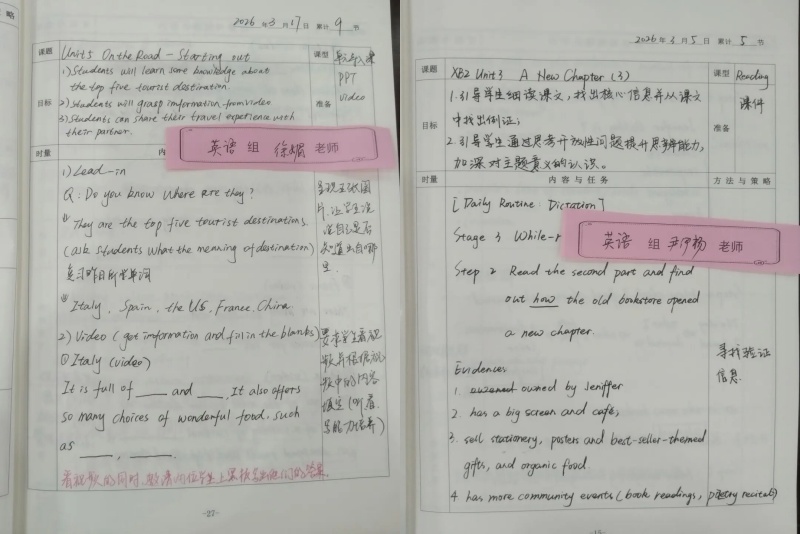 2026 年 3 月 17 日 累计 9 节
课题 Unit 5 On the Road - Starting out 课型
1) Students will learn some knowledge about
the top five tourist destination. PPT
目标 2) Students will grasp imformation from video 准备 video
3) Students can share their travel experience with
their partner.
英语 组 老师
时量 内
1) Lead-in
Q: Do you know where are they?
They are the top five tourist destinations.
(ask students what the meaning of destination)
复习昨日所学单词
Italy, Spain, the US, France, China
2) Video (got imformation and fill in the blanks)
① Italy (video)
It is full of ____ and ____. It also offers
so many choices of wonderful food, such
as ____, ____.
看视频的同时,邀请
-22-
2026 年 3 月 5 日 累计 5 节
课题 XB2 Unit 3 A New Chapter (3) 课型 Reading
1. 引导学生细读课文,找出核心信息并从课文
中找出例证;
目标 准备 课件
2. 引导学生通过思考开放性问题提升思辨能力,
加深对主题意义的认识。
时量 内容与任务 方法与策略
[Daily Routine: Dictation]
Stage 3 While-r
英语 组 老师
Step 2 Read the second part and find
out how the old bookstore opened
a new chapter.
寻找验证
信息
Evidences
1. owned by Jeniffer
2. has a big screen and café,
3. sell stationery, posters and best-seller-themed
gifts, and organic food.
4. has more community events (book readings, poetry recitals)
-15-